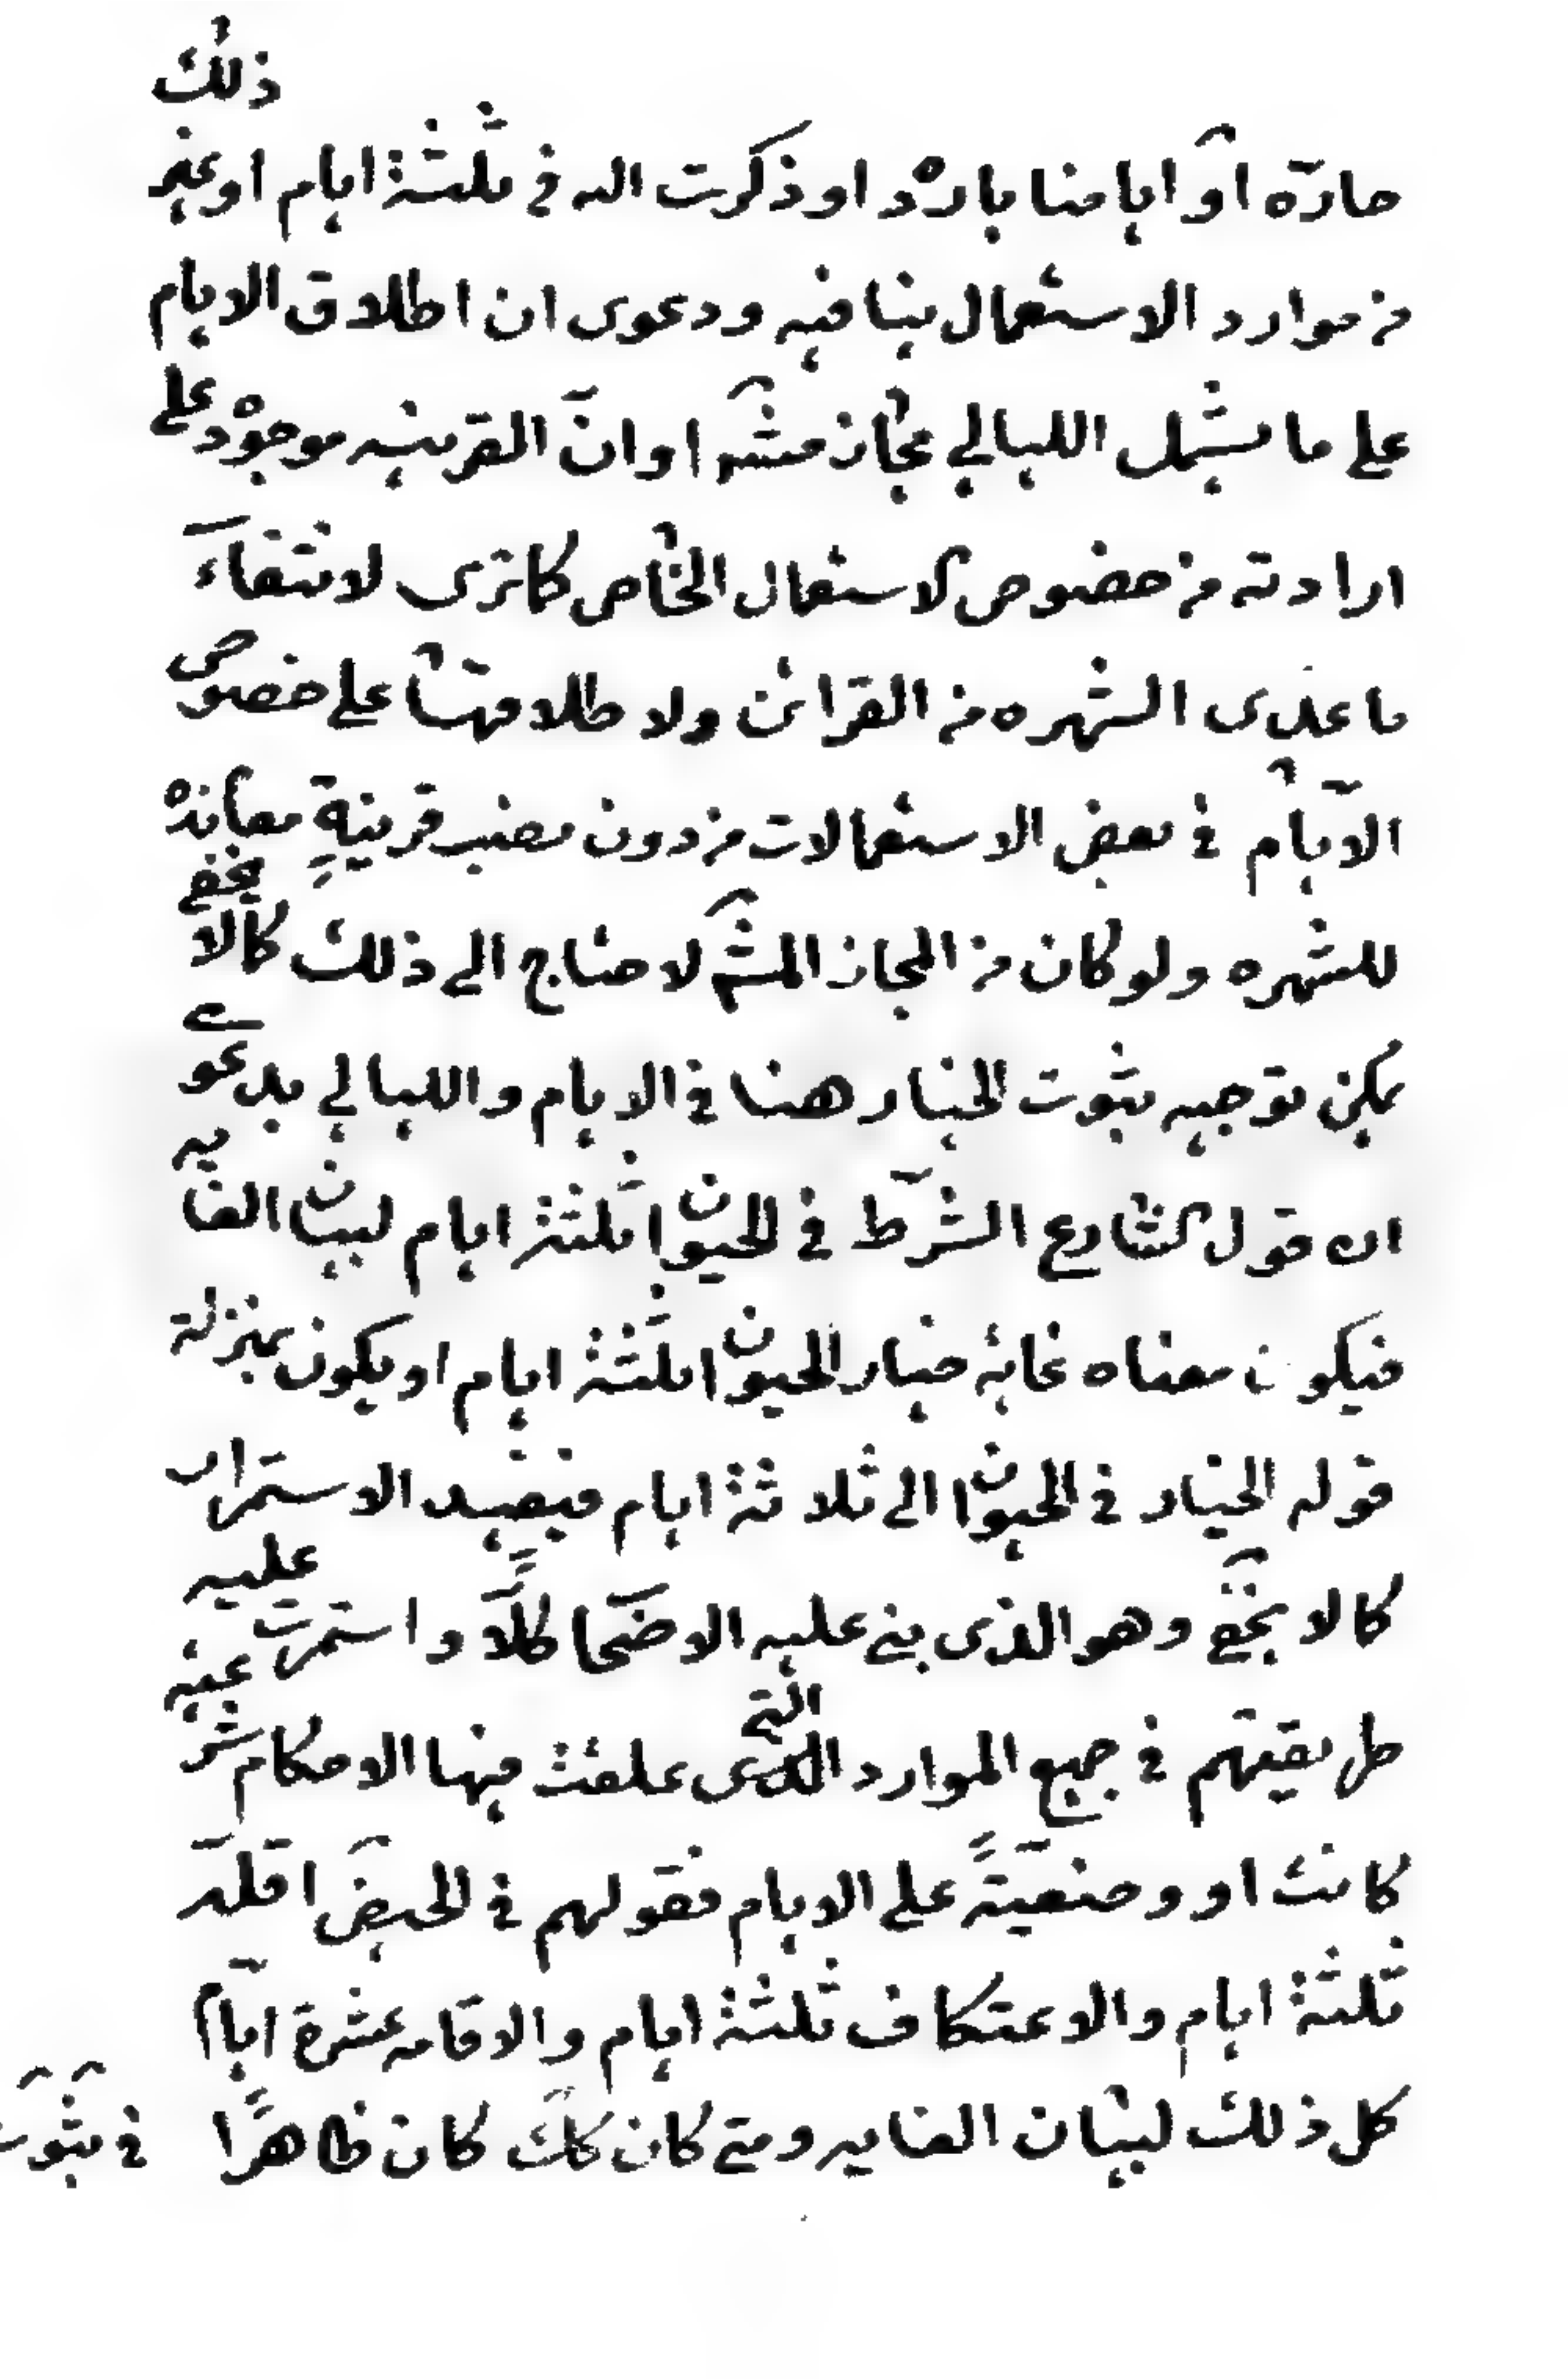 حارّه او ايامنا بارده او ذكرت الله في ثلثة ايام او غير ذلك
من موارد الاستعمال ينافيه ودعوى ان اطلاق الايام
على ما يشمل الليالي مجاز مشهور او انّ القرينه موجوده على
ارادته من خصوص الاستعمال الخاص كما ترى لانتفاء
ما عدى الشهره من القرائن ولاطلاقها على خصوص
الايّام في بعض الاستعمالات من دون نصب قرينةٍ معانده
للشهره ولو كان من المجاز المشهور لاحتاج الى ذلك كما لا يخفى
يمكن توجيه ثبوت الخيار هنا في الايام والليالي بدعوى
ان قول الشارع الشرط في الحيوان ثلثة ايام لبيان الغايه
فيكون معناه غاية خيار الحيوان ثلثة ايام او يكون بمنزلة
قوله الخيار في الحيوان الى ثلاثة ايام فيفيد الاستمرار
كما لا يخفى وهو الذى بنى عليه الاصحاب كلّاً واستمرت عليه
طريقتهم في جميع الموارد التى علقت فيها الاحكام شرعية
كانت او وضعيّةً على الايام فقولهم في الحيض اقلّه
ثلثة ايام والاعتكاف ثلثة ايام والاقامه عشرة ايّام
كل ذلك لبيان الغايه ومتى كان كك كان ظاهرًا
في ثبوت